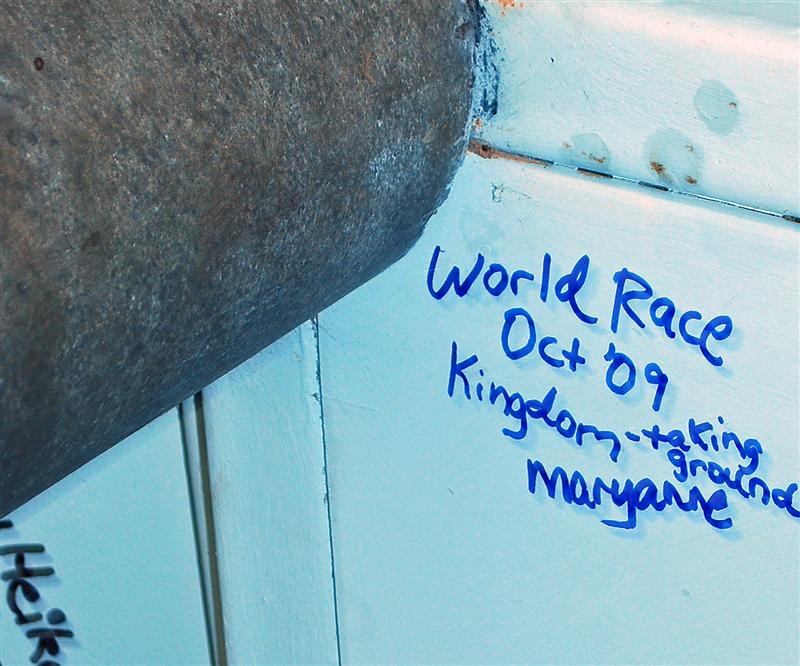 World Race
Oct '09
Kingdom-taking
ground
maryanne
Heiko